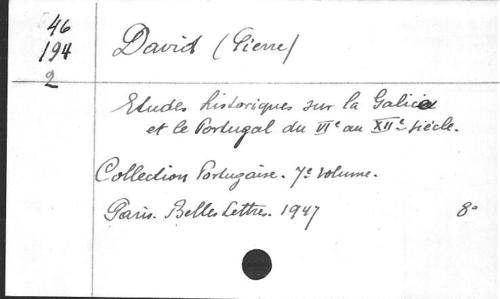 46
194
2
David (Pierre)
Etudes historiques sur la Galice
et le Portugal du VIe au XIIe siècle.
Collection Portugaise. 7e volume.
Paris. Belles Lettres. 1947 8°